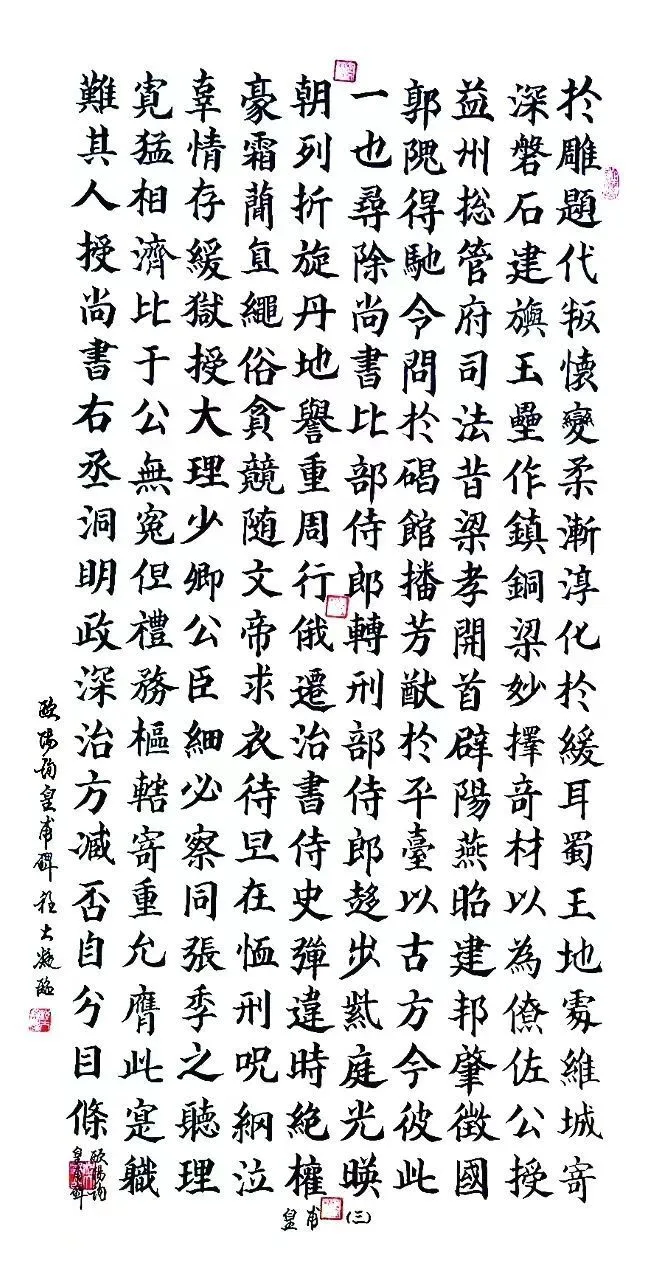 於雕題代叛懷變柔漸淳化於緩耳蜀王地處維城寄
深磐石建旟玉壘作鎮銅梁妙擇奇材以為僚佐公授
益州揔管府司法昔梁孝開首辟陽燕昭建邦肇徵國
郭隗得馳令問於碣館播芳猷於平臺以古方今彼此
一也尋除尚書比部侍郎轉刑部侍郎趍步紫庭光暎
朝列折旋丹地譽重周行俄遷治書侍史彈違時絕權
豪霜蕳直繩俗貪競随文帝求衣待旦在恤刑呪網泣
辜情存緩獄授大理少卿公臣細必察同張季之聽理
寬猛相濟比于公無冤但禮務樞轄寄重允膺此寔職
難其人授尚書右丞洞明政深治方減否自分目條
歐陽詢皇甫碑程大凝臨
歐陽詢
皇甫碑
皇甫(三)